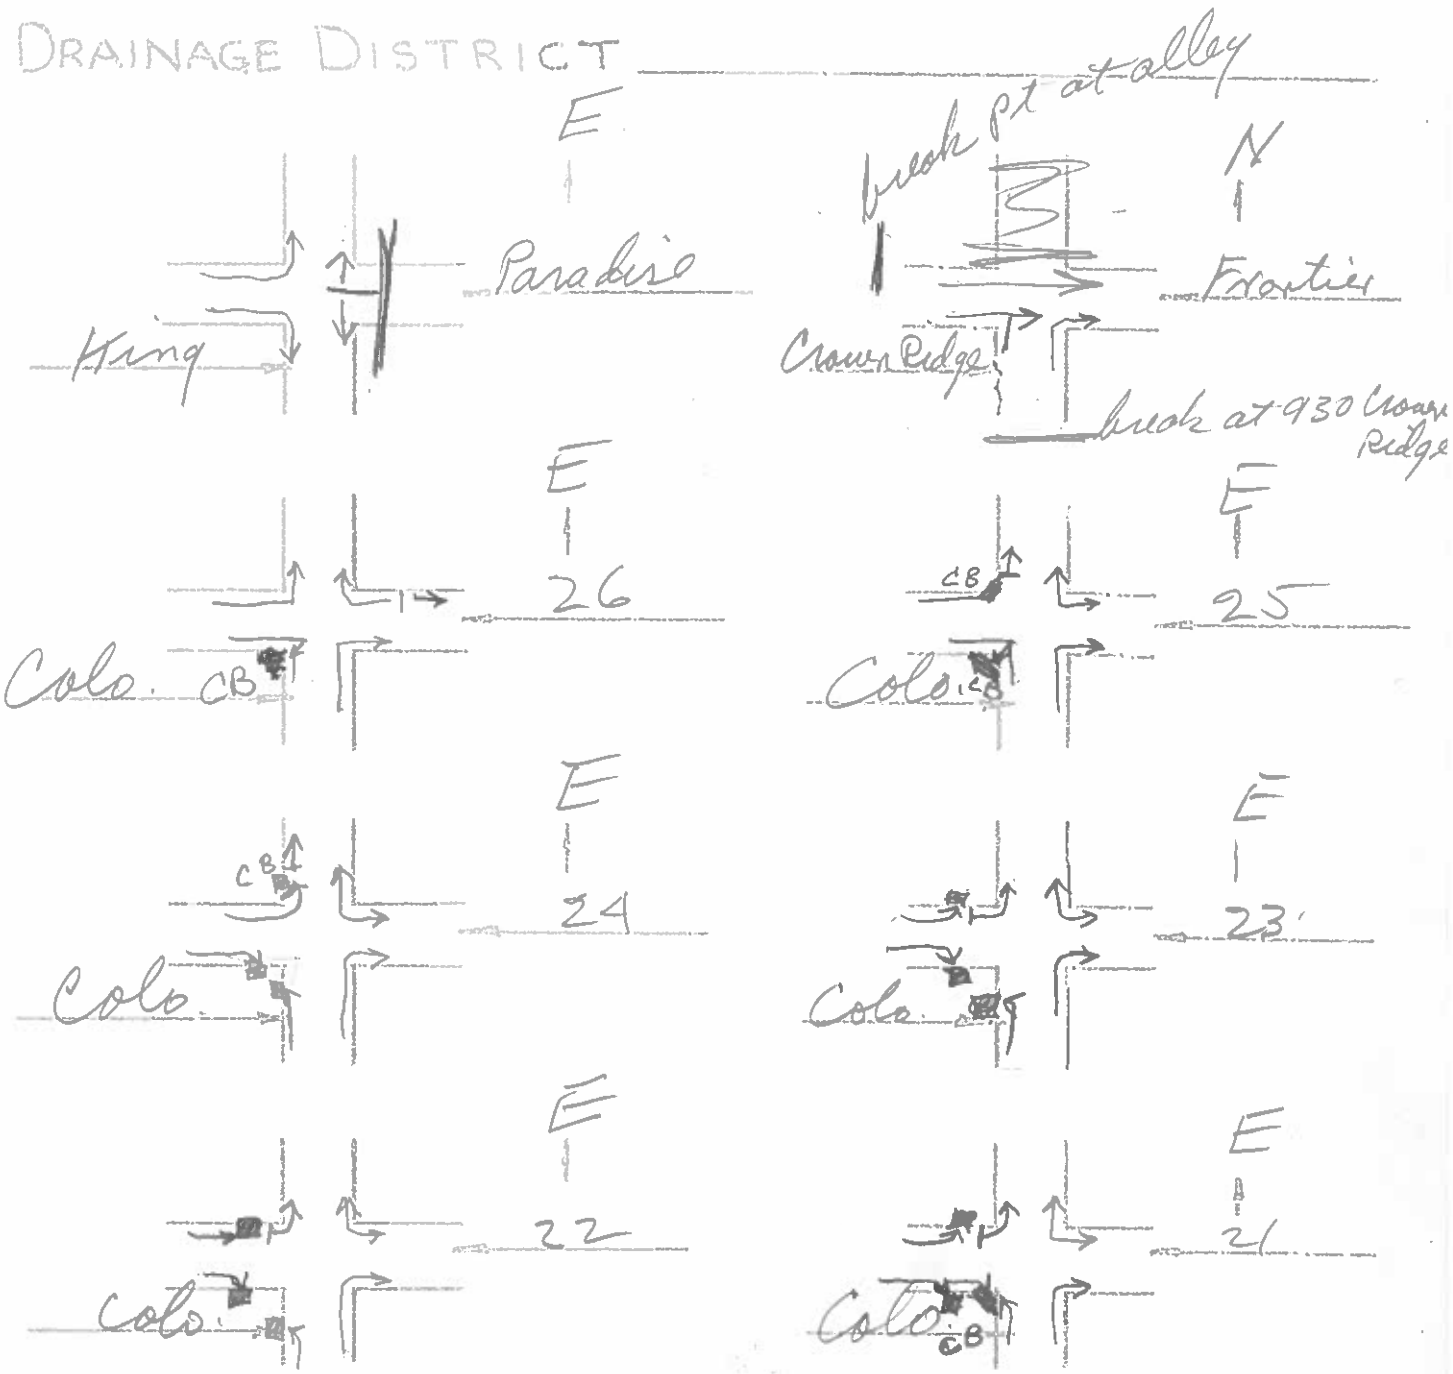 DRAINAGE DISTRICT
break pt at alley
E
N
Paradise
King
Frontier
Crown Ridge
break at 930 Crown
Ridge
E
26
Colo. CB
E
CB
25
Colo. CB
E
CB
24
Colo.
E
23
Colo.
E
22
Colo.
E
21
Colo.
CB